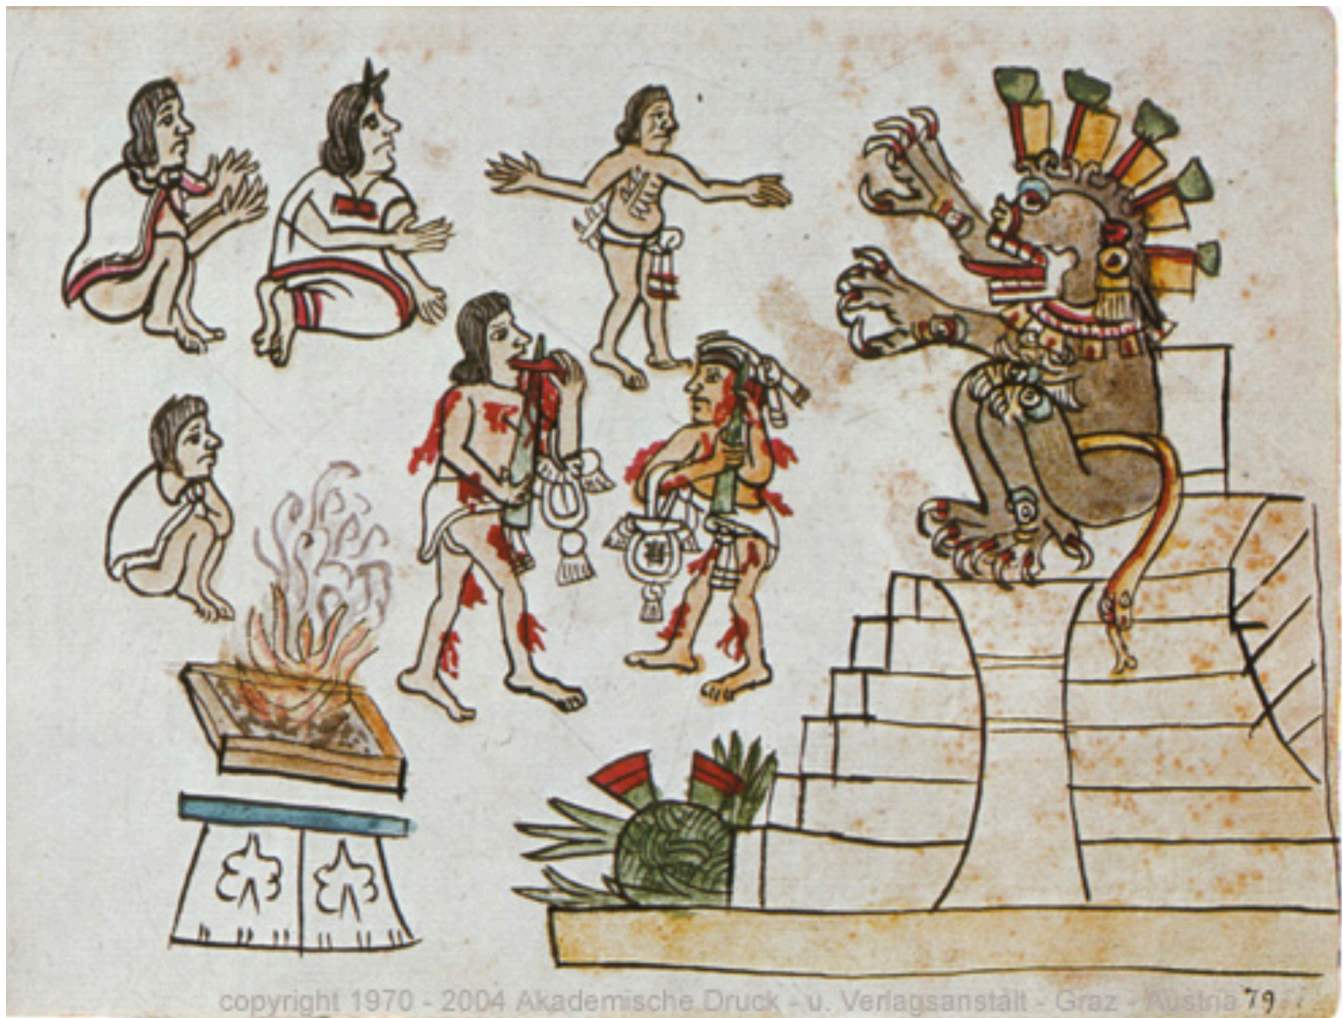 copyright 1970 - 2004 Akademische Druck - u. Verlagsanstalt - Graz - Austria 79